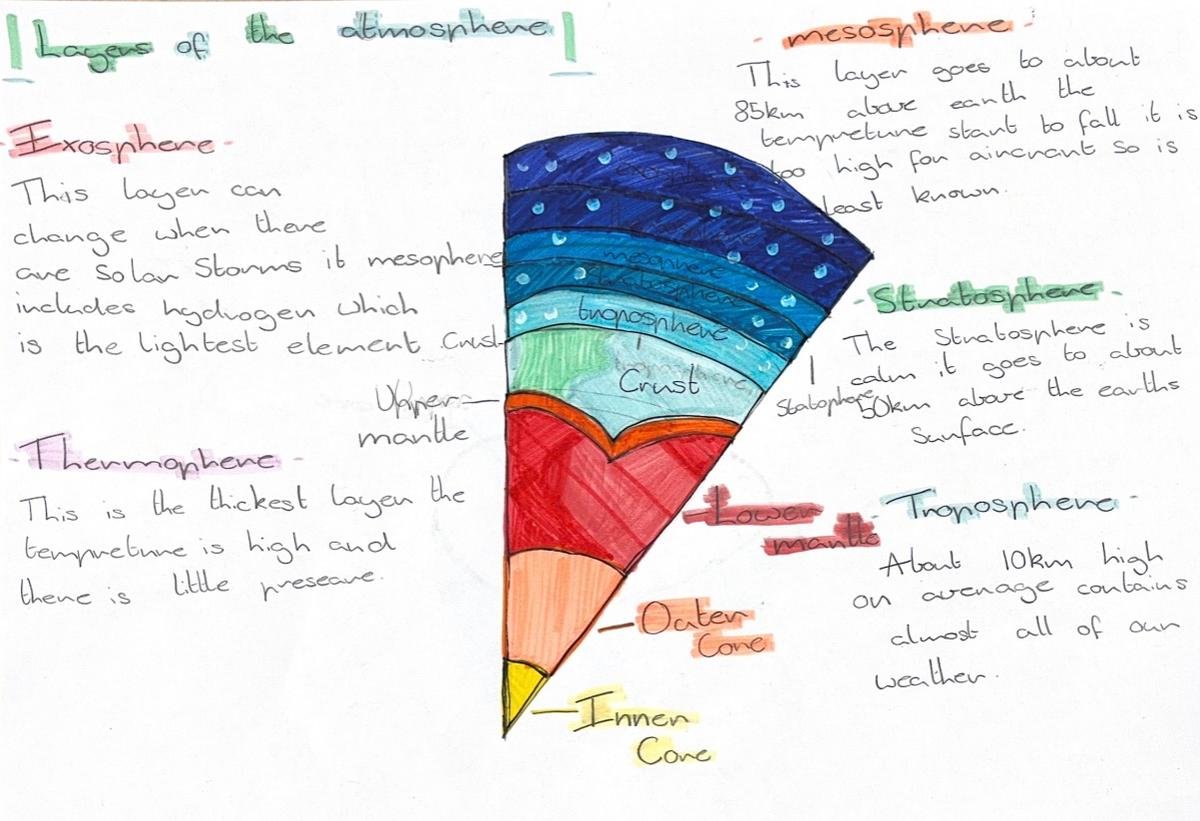 Layers of the atmosphere
- Exosphere -
This layer can
change when there
are Solar Storms it
includes hydrogen which
is the lightest element
- Thermophere -
This is the thickest layer the
tempreture is high and
there is little preseare.
mesophere
Crust
Upper
mantle
exosphere
mesophere
stratosphere
troposphere
Crust
- mesosphere -
This layer goes to about
85km above earth the
tempreture start to fall it is
too high for aircrant so is
least known.
- Stratosphere -
The Stratosphere is
calm it goes to about
50km above the earths
Surface.
Statophere
- Troposphere -
About 10km high
on average contains
almost all of our
weather.
Lower
mantle
Outer
Core
Inner
Core